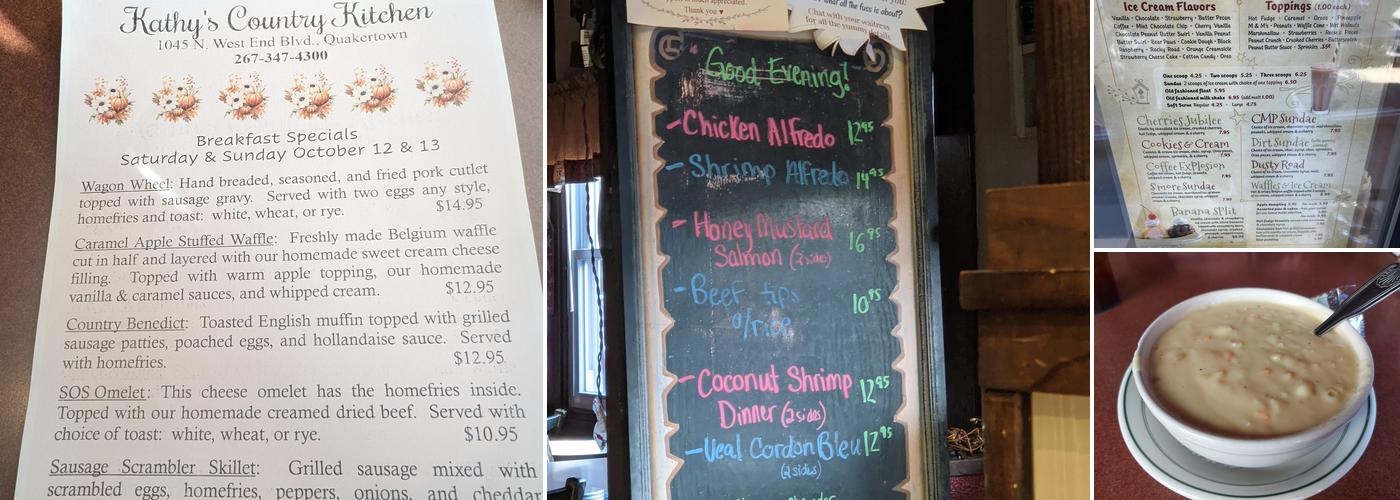 Kathy's Country Kitchen
1045 N. West End Blvd., Quakertown
267-347-4300
Breakfast Specials
Saturday & Sunday October 12 & 13
Wagon Wheel: Hand breaded, seasoned, and fried pork cutlet
topped with sausage gravy. Served with two eggs any style,
homefries and toast: white, wheat, or rye. $14.95
Caramel Apple Stuffed Waffle: Freshly made Belgium waffle
cut in half and layered with our homemade sweet cream cheese
filling. Topped with warm apple topping, our homemade
vanilla & caramel sauces, and whipped cream. $12.95
Country Benedict: Toasted English muffin topped with grilled
sausage patties, poached eggs, and hollandaise sauce. Served
with homefries. $12.95
SOS Omelet: This cheese omelet has the homefries inside.
Topped with our homemade creamed dried beef. Served with
choice of toast: white, wheat, or rye. $10.95
Sausage Scrambler Skillet: Grilled sausage mixed with
scrambled eggs, homefries, peppers, onions, and cheddar
is much appreciated.
Thank you ♥
what all the fuss is about?
Chat with your waitress
for all the yummy details
Good Evening!
- Chicken Alfredo 12⁹⁵
- Shrimp Alfredo 14⁹⁵
- Honey Mustard 16⁹⁵
Salmon (2 sides)
- Beef tips 10⁹⁵
o/rice
- Coconut Shrimp 12⁹⁵
Dinner (2 sides)
- Veal Cordon Bleu 12⁹⁵
(2 sides)
Ice Cream Flavors
Vanilla • Chocolate • Strawberry • Butter Pecan
Coffee • Mint Chocolate Chip • Cherry Vanilla
Chocolate Peanut Butter Swirl • Vanilla Peanut
Butter Swirl • Bear Paws • Cookie Dough • Black
Raspberry • Rocky Road • Orange Creamsicle
Strawberry Cheese Cake • Cotton Candy • Oreo
Toppings (1.00 each)
Hot Fudge • Caramel • Oreos • Pineapple
M & M's • Peanuts • Waffle Cone • Wet Walnuts
Marshmallow • Strawberries • Reese's Pieces
Peanut Crunch • Crushed Cherries • Butterscotch
Peanut Butter Sauce • Sprinkles .55¢
One scoop 4.25 • Two scoops 5.25 • Three scoops 6.25
Sundae 2 scoops of ice cream with choice of one topping 6.50
Old fashioned float 5.95
Old fashioned milk shake 6.95 (add malt 1.00)
Soft Serve Regular 4.25 • Large 4.75
Cherries Jubilee
7.95
CMP Sundae
7.95
Cookies & Cream
7.95
Dirt Sundae
7.95
Coffee Explosion
7.95
Dusty Road
7.95
S'more Sundae
Waffles & Ice Cream
Banana Split